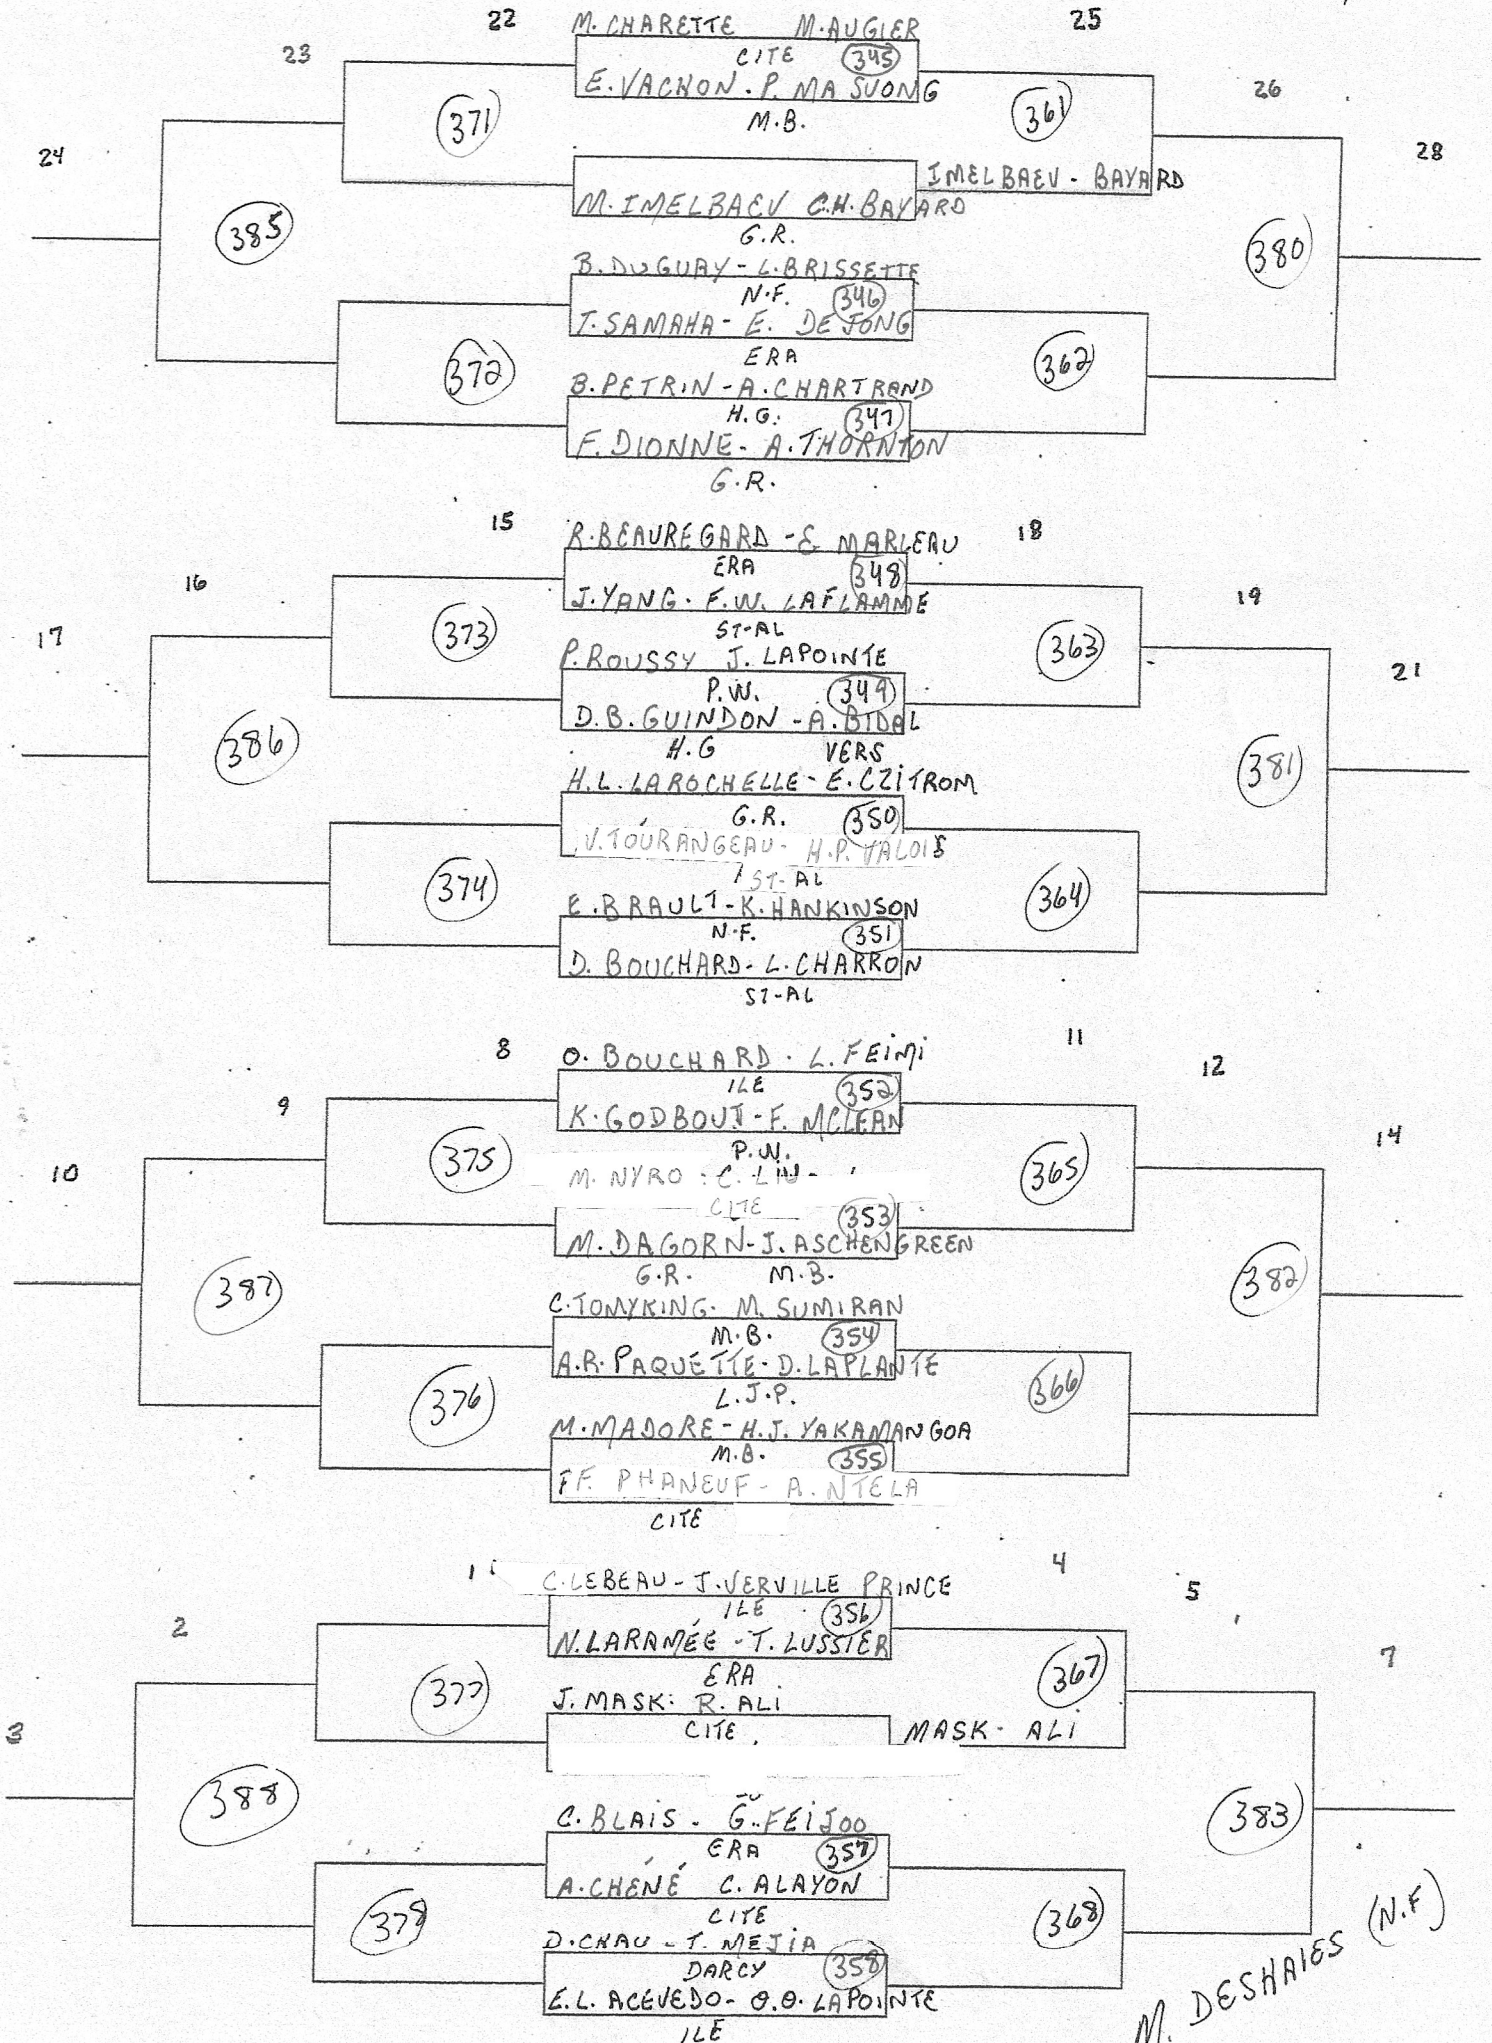 22 M. CHARETTE M. AUGIER 25
23 CITE 345
E. VACHON. P. MA SUONG
371 M.B. 361 26
24 28
IMELBAEV - BAYARD
M. IMELBAEV C.H. BAYARD
385 G.R. 380
B. DUGUAY - L. BRISSETTE
N.F. 346
T. SAMAHA - E. DE JONG
372 ERA 362
B. PETRIN - A. CHARTRAND
H.G. 347
F. DIONNE - A. THORNTON
G.R.
15 R. BEAUREGARD - E MARLEAU 18
16 ERA 348 19
J. YANG. F.W. LAFLAMME
17 373 ST-AL 363 21
P. ROUSSY J. LAPOINTE
P.W. 349
D.B. GUINDON - A. BIDAL
386 H.G VERS 381
H.L. LAROCHELLE - E. CZITROM
G.R. 350
V. TOURANGEAU - H.P. VALOIS
374 ST-AL 364
E. BRAULT - K. HANKINSON
N.F. 351
D. BOUCHARD - L. CHARRON
ST-AL
8 O. BOUCHARD. L. FEIMI 11
9 ILE 352 12
K. GODBOUT - F. MCLEAN
375 P.W. 365 14
10 M. NYRO : C. LIU -
CITE 353
M. DAGORN - J. ASCHENGREEN
387 G.R. M.B. 382
C. TOMYKING. M. SUMIRAN
M.B. 354
A.R. PAQUETTE - D. LAPLANTE
376 L.J.P. 366
M. MADORE - H.J. YAKAMANGOA
M.B. 355
FF. PHANEUF - A. NTELA
CITE
1 C. LEBEAU - J. VERVILLE PRINCE 4
2 ILE 356 5
N. LARAMÉE - T. LUSSIER
377 ERA 367 7
J. MASK: R. ALI
3 CITE MASK - ALI
388 383
C. BLAIS - G. FEIJOO
ERA 357
A. CHÉNÉ C. ALAYON
378 CITE 368
D. CHAU - T. MEJIA
DARCY 358
E.L. ACEVEDO - O.O. LAPOINTE
ILE
M. DESHAIES (N.F)